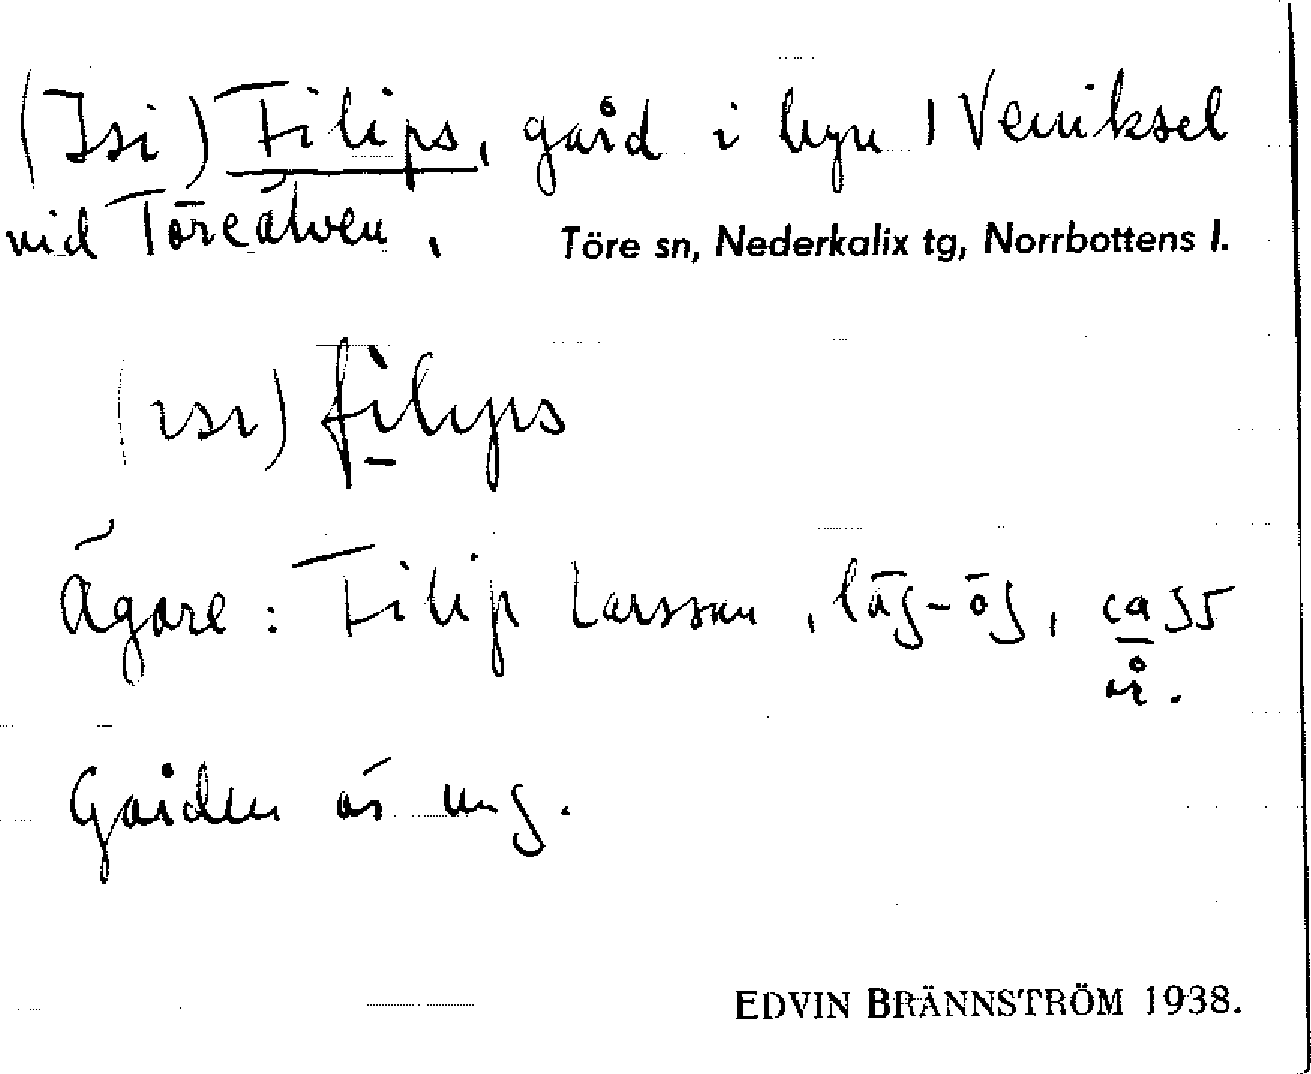 (Isi) Filips, gård i byn 1 Veniksel
vid Töreälven, Töre sn, Nederkalix tg, Norrbottens l.
(ısı) fìlıps
Ägare: Filip Larsson, låg-ög, ca 55
år.
Gården är ung.
EDVIN BRÄNNSTRÖM 1938.